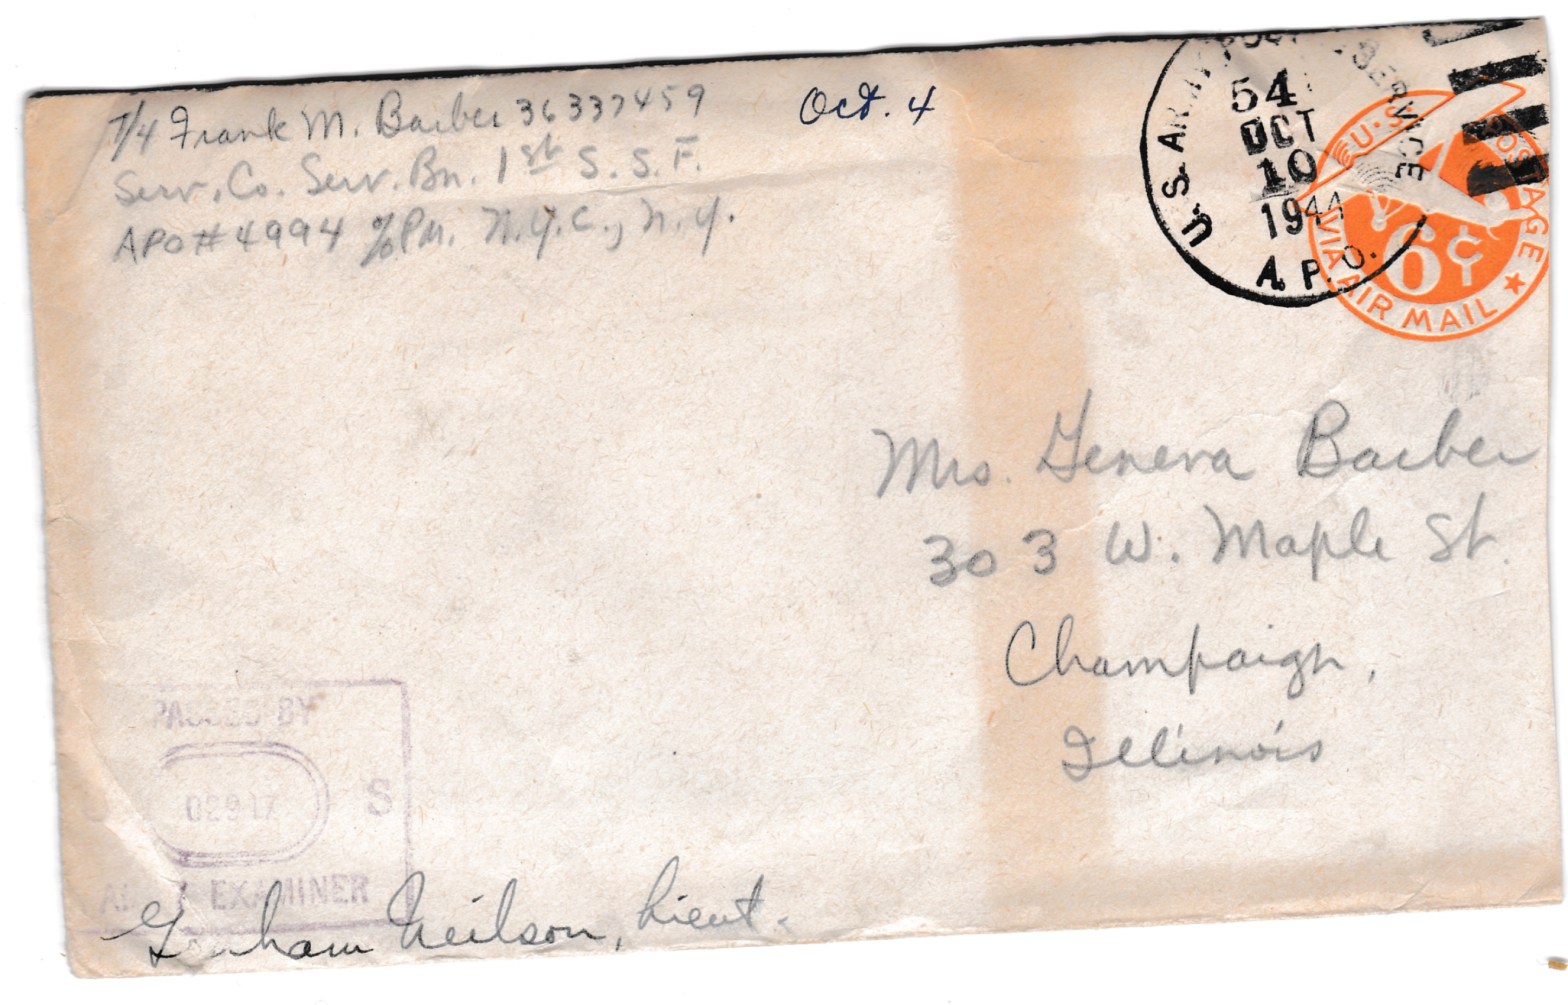 T/4 Frank M. Barber 36337459
Serv. Co. Serv. Bn. 1st S. S. F.
APO # 4994 c/o PM. N.Y.C., N.Y.
Oct. 4
U.S. ARMY POSTAL SERVICE
54
OCT
10
1944
A.P.O.
U.S. POSTAGE
6¢
VIA AIR MAIL
Mrs. Geneva Barber
303 W. Maple St.
Champaign,
Illinois
PASSED BY
U S
02917
ARMY EXAMINER
Neilson, Lieut.